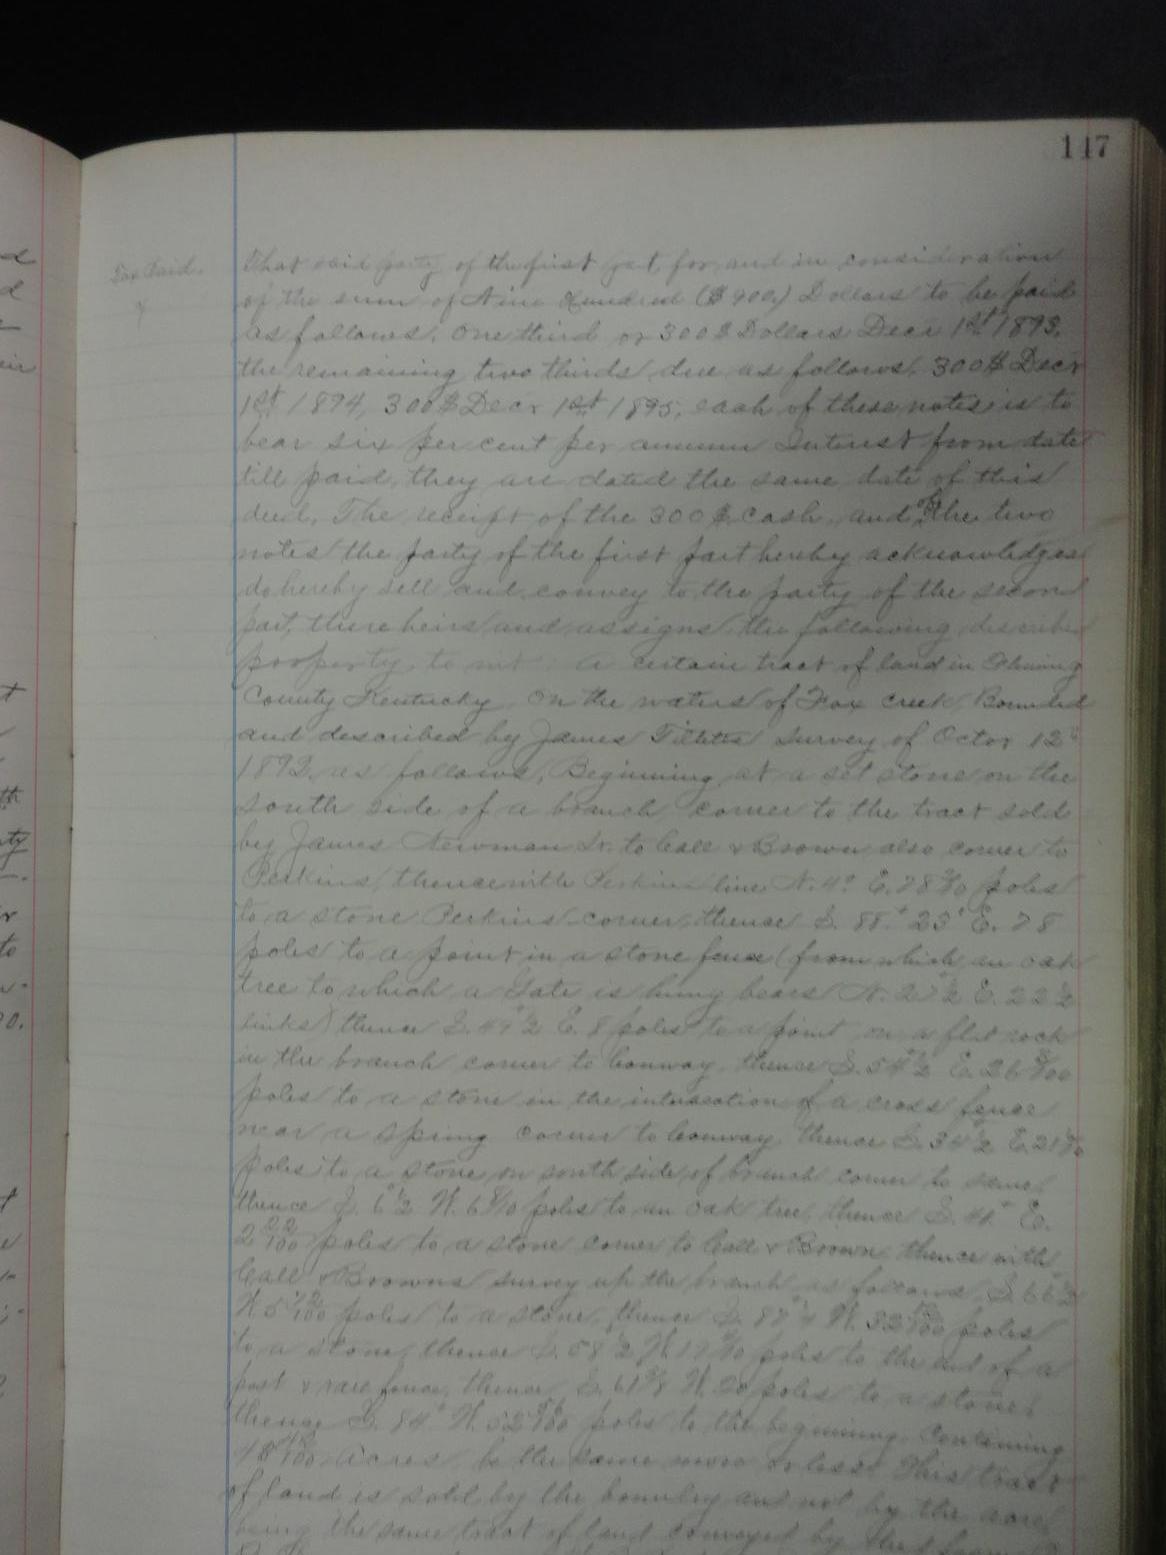 117
Tax Paid.
That said party of the first part, for and in consideration
of the sum of Nine Hundred ($900,) Dollars to be paid
as follows, One third or 300$ Dollars Decr 1st 1893,
the remaining two thirds due as follows, 300$ Decr
1st 1894, 300$ Decr 1st 1895, each of these notes is to
bear six per cent per annum Interest from date
till paid, they are dated the same date of this
deed, The receipt of the 300$ cash, and of the two
notes the party of the first part hereby acknowledges
do hereby sell and convey to the party of the second
part, there heirs and assigns, the following described
property, to wit: A certain tract of land in Fleming
County Kentucky, On the waters of Fox creek, Bounded
and described by James survey of Octor 12th
1892, as follows, Beginning at a set stone on the
south side of a branch corner to the tract sold
by James Newman Sr. to Call & Brown also corner to
Perkins, thence with Perkins line N. 4° E. poles
to a stone Perkins corner, thence S. 88° 23' E. 78
poles to a point in a stone fence (from which an oak
tree to which a Gate is hung bears N. E. 22 1/2
links) thence S. 49° 1/2 E. 8 poles to a point on a flat rock
in the branch corner to Conway, thence S. 54° 1/2 E.
poles to a stone in the intersection of a cross fence
near a spring corner to Conway thence S. 34° 1/2 E.
poles to a stone on south side of branch corner to same
thence S. 6° 1/2 W. 6 poles to an oak tree, thence S. E.
2 22/100 poles to a stone corner to Call & Brown, thence with
Call & Browns survey up the branch as follows, S.
W. poles to a stone, thence S. W. poles
to a stone, thence S. 58° 1/2 W. poles to the end of a
post & rail fence, thence S. W. 20 poles to a stone
thence S. 84° W. poles to the beginning, Containing
acres, be the same more or less This tract
of land is sold by the boundry and not by the acre
being the same tract of land conveyed by